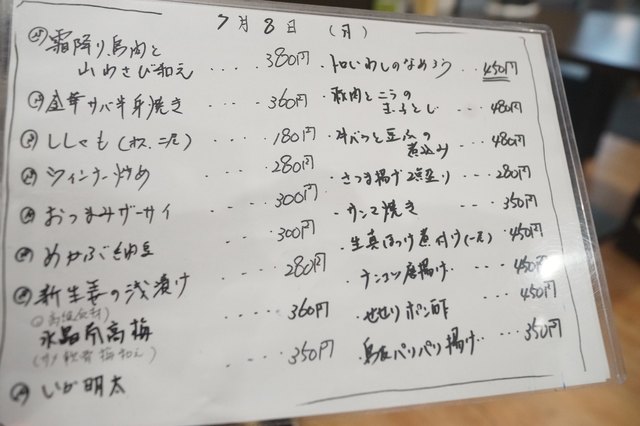 7月8日（月）
霜降り馬肉と
山わさび和え ････ 380円
金華サバ半身焼き ････ 360円
ししゃも（オス、二尾） ････ 180円
ウィンナー炒め ････ 280円
おつまみザーサイ ････ 300円
めかぶ納豆 ････ 300円
新生姜の浅漬け ････ 280円
水晶南高梅 ････ 360円
いか明太 ････ 350円
・トロいわしのなめろう ･･ 450円
・豚肉とニラの
玉子とじ ･･･ 480円
・牛バラと豆ふの
煮込み ･･･ 480円
・さつま揚げ2点盛り ･･･ 280円
・サンマ焼き ･･･ 350円
・生真ほっけ煮付け（一尾） 450円
・ナンコツ唐揚げ ･･･ 450円
・せせりポン酢 ･･･ 450円
・鳥皮パリパリ揚げ ･･･ 350円